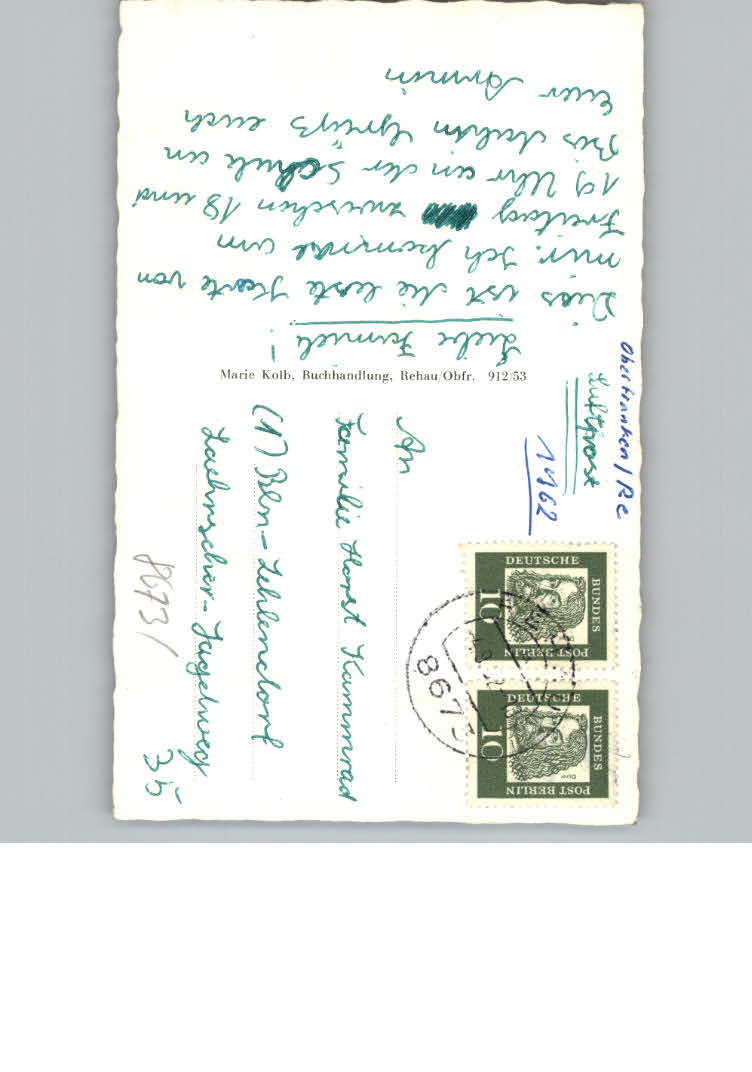 Liebe Famili!
Dies ist die letzte Karte von
mir. Ich komme am
Freitag zwischen 18 und
19 Uhr an der Schule an
Bis dahin Grüß euch
Euer Armin
Marie Kolb, Buchhandlung, Rehau/Obfr. 912/53
Oberfranken/Re
Luftpost
1962
An
Familie Horst Kammrad
(1) Bln-Zehlendorf
Laehrscher-Jagdweg
35
8673/
DEUTSCHE
BUNDES
POST BERLIN
10
DEUTSCHE
BUNDES
POST BERLIN
Dürer
10
8673